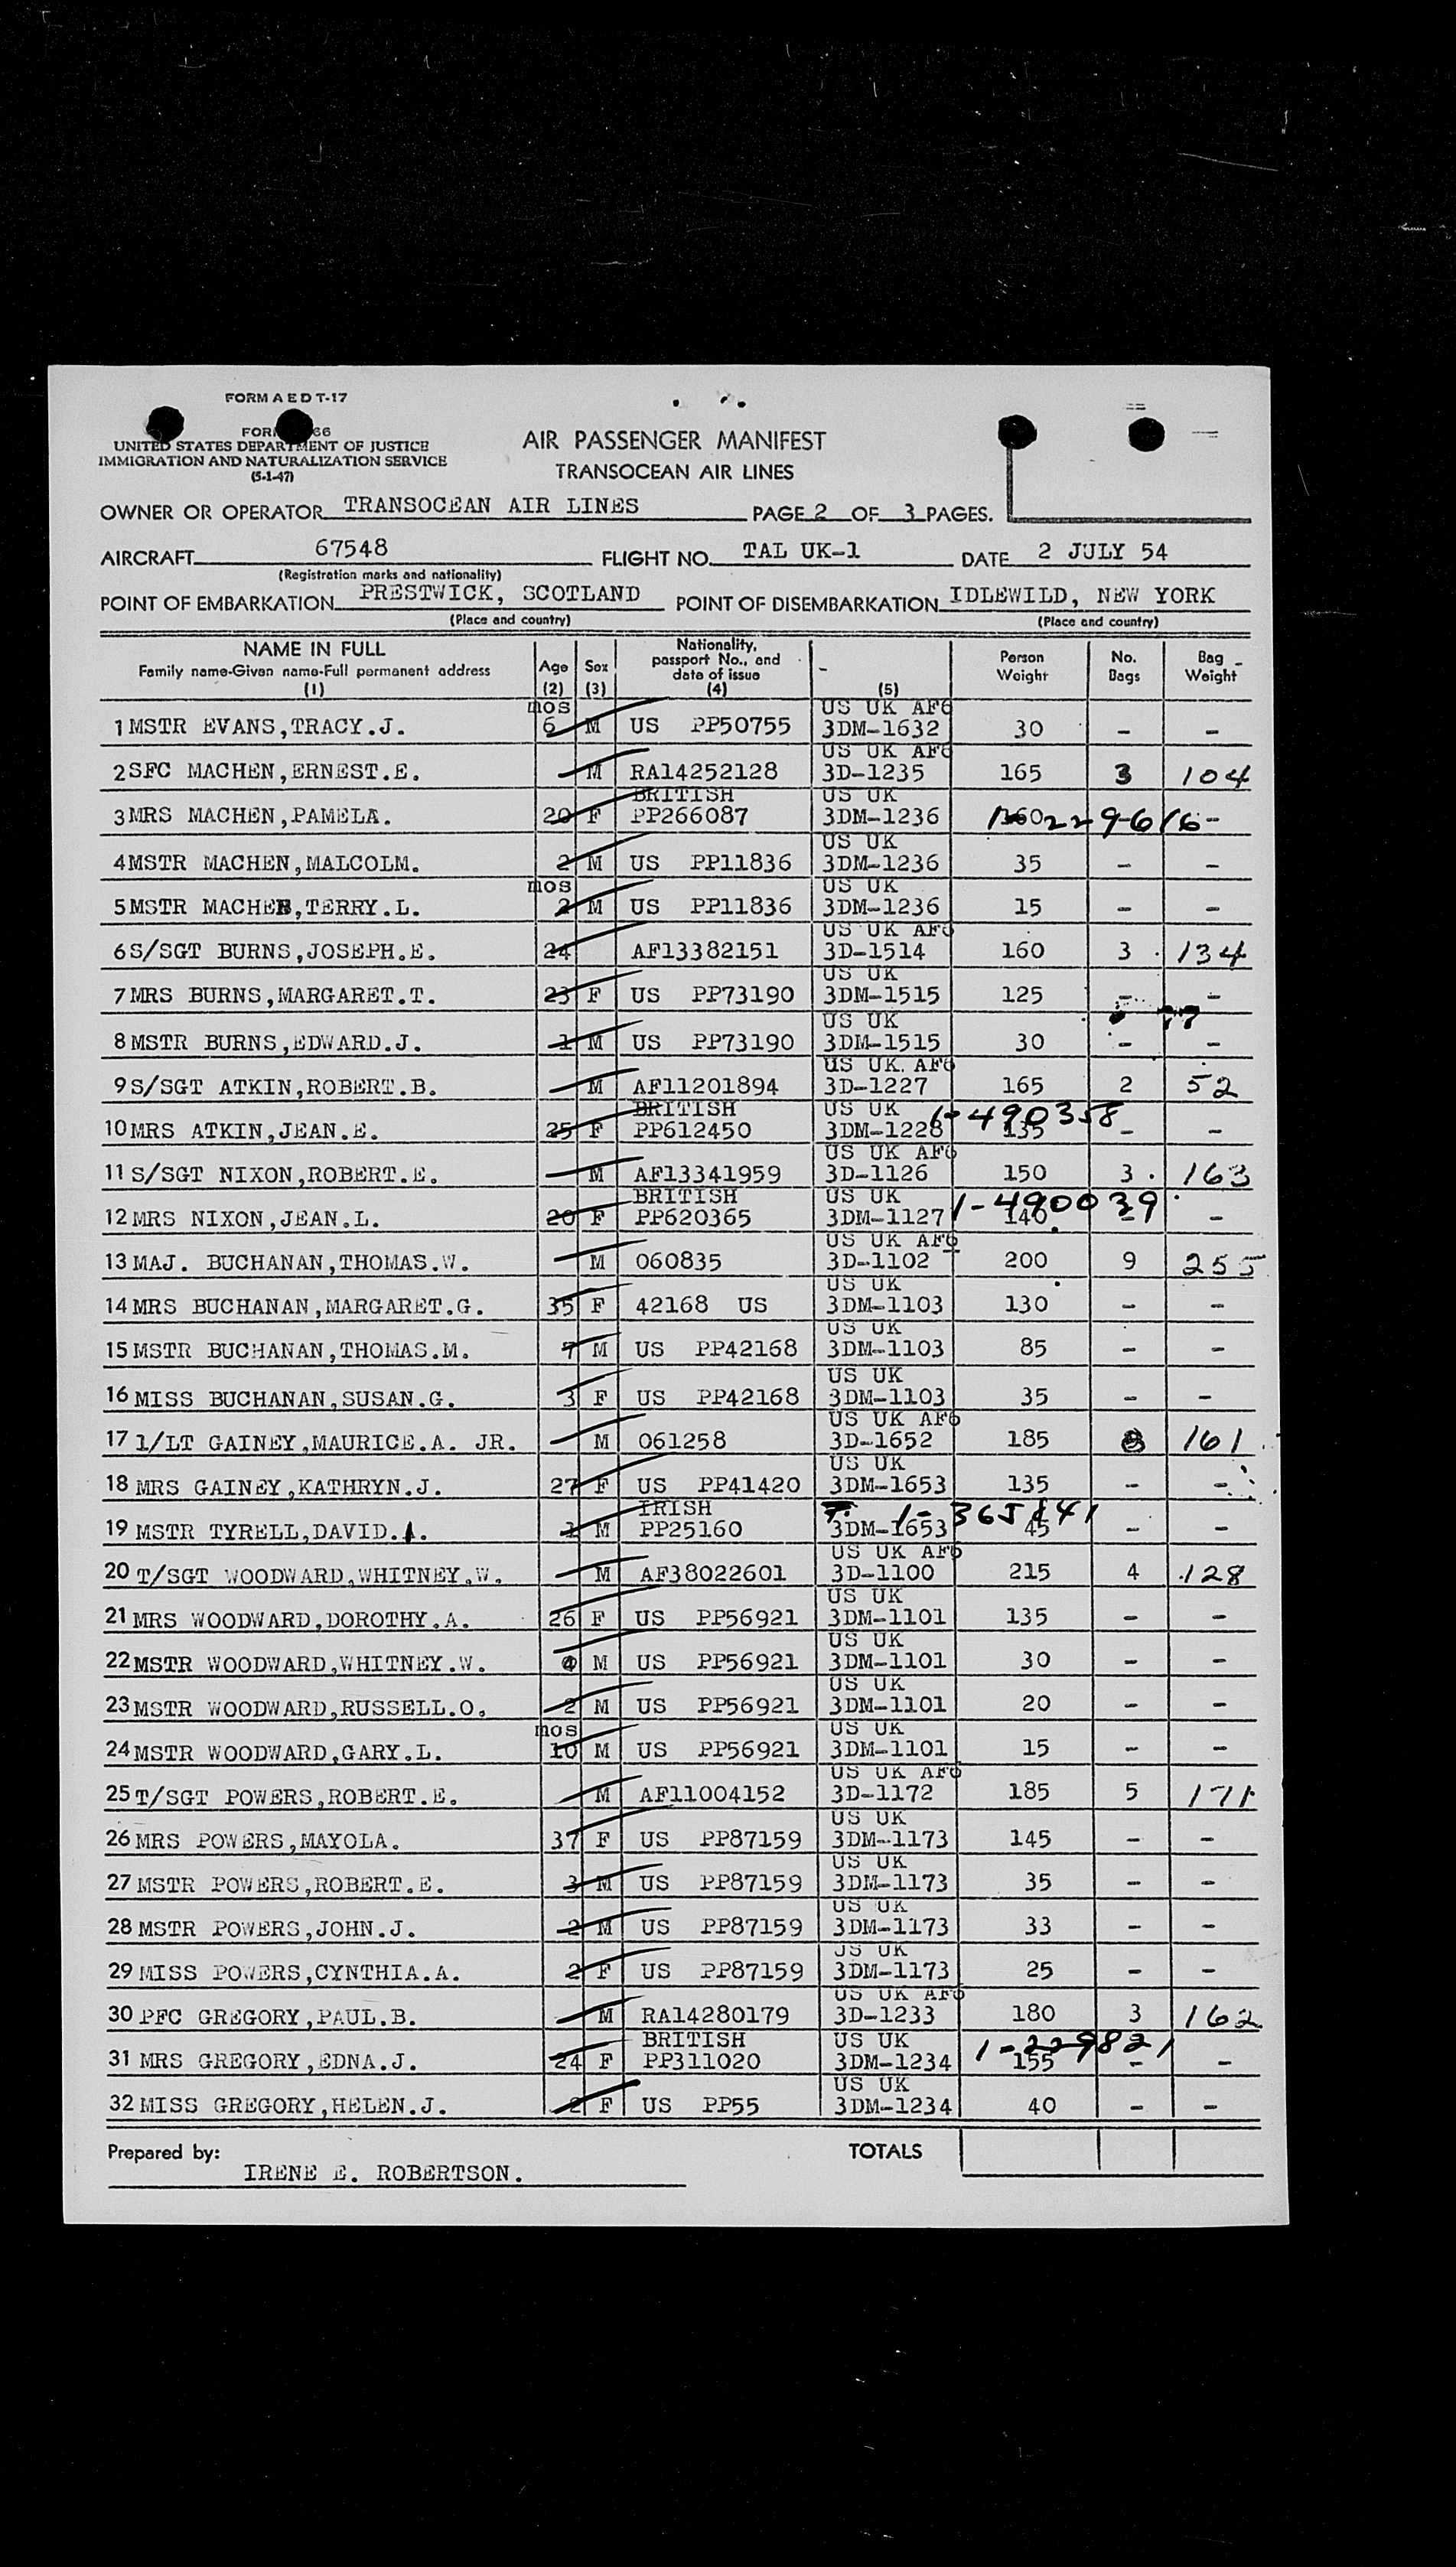 FORM A E D T-17
UNITED STATES DEPARTMENT OF JUSTICE
IMMIGRATION AND NATURALIZATION SERVICE
(5-1-47)
AIR PASSENGER MANIFEST
TRANSOCEAN AIR LINES
OWNER OR OPERATOR TRANSOCEAN AIR LINES PAGE 2 OF 3 PAGES.
AIRCRAFT 67548 FLIGHT NO. TAL UK-1 DATE 2 JULY 54
(Registration marks and nationality)
POINT OF EMBARKATION PRESTWICK, SCOTLAND POINT OF DISEMBARKATION IDLEWILD, NEW YORK
(Place and country) (Place and country)
NAME IN FULL Family name-Given name-Full permanent address (1) Age (2) Sex (3) Nationality, passport No., and date of issue (4) (5) Person Weight No. Bags Bag Weight
mos US UK AF6
1 MSTR EVANS,TRACY.J. 6 M US PP50755 3DM-1632 30 - -
US UK AF6
2 SFC MACHEN,ERNEST.E. M RA14252128 3D-1235 165 3 104
BRITISH US UK
3 MRS MACHEN,PAMELA. 20 F PP266087 3DM-1236 -
US UK
4 MSTR MACHEN,MALCOLM. 2 M US PP11836 3DM-1236 35 - -
mos US UK
5 MSTR MACHEN,TERRY.L. 2 M US PP11836 3DM-1236 15 - -
US UK AF6
6 S/SGT BURNS,JOSEPH.E. 24 AF13382151 3D-1514 160 3 134
US UK
7 MRS BURNS,MARGARET.T. 23 F US PP73190 3DM-1515 125 - -
US UK
8 MSTR BURNS,EDWARD.J. 1 M US PP73190 3DM-1515 30 - -
US UK. AF6
9 S/SGT ATKIN,ROBERT.B. M AF11201894 3D-1227 165 2 52
BRITISH US UK 1-490358
10 MRS ATKIN,JEAN.E. 25 F PP612450 3DM-1228 135 - -
US UK AF6
11 S/SGT NIXON,ROBERT.E. M AF13341959 3D-1126 150 3 163
BRITISH US UK 1-490039
12 MRS NIXON,JEAN.L. 20 F PP620365 3DM-1127 140 - -
US UK AF6
13 MAJ. BUCHANAN,THOMAS.W. M 060835 3D-1102 200 9 255
US UK
14 MRS BUCHANAN,MARGARET.G. 35 F 42168 US 3DM-1103 130 - -
US UK
15 MSTR BUCHANAN,THOMAS.M. 7 M US PP42168 3DM-1103 85 - -
US UK
16 MISS BUCHANAN,SUSAN.G. 3 F US PP42168 3DM-1103 35 - -
US UK AF6
17 1/LT GAINEY,MAURICE.A. JR. M 061258 3D-1652 185 8 161
US UK
18 MRS GAINEY,KATHRYN.J. 27 F US PP41420 3DM-1653 135 - -
IRISH
19 MSTR TYRELL,DAVID. M PP25160 3DM-1653 45 - -
US UK AF6
20 T/SGT WOODWARD,WHITNEY.W. M AF38022601 3D-1100 215 4 128
US UK
21 MRS WOODWARD,DOROTHY.A. 26 F US PP56921 3DM-1101 135 - -
US UK
22 MSTR WOODWARD,WHITNEY.W. 4 M US PP56921 3DM-1101 30 - -
US UK
23 MSTR WOODWARD,RUSSELL.O. 2 M US PP56921 3DM-1101 20 - -
mos US UK
24 MSTR WOODWARD,GARY.L. 10 M US PP56921 3DM-1101 15 - -
US UK AF6
25 T/SGT POWERS,ROBERT.E. M AF11004152 3D-1172 185 5 171
US UK
26 MRS POWERS,MAYOLA. 37 F US PP87159 3DM-1173 145 - -
US UK
27 MSTR POWERS,ROBERT.E. 3 M US PP87159 3DM-1173 35 - -
US UK
28 MSTR POWERS,JOHN.J. 2 M US PP87159 3DM-1173 33 - -
US UK
29 MISS POWERS,CYNTHIA.A. 2 F US PP87159 3DM-1173 25 - -
US UK AF6
30 PFC GREGORY,PAUL.B. M RA14280179 3D-1233 180 3 162
BRITISH US UK 1-229821
31 MRS GREGORY,EDNA.J. 24 F PP311020 3DM-1234 155 - -
US UK
32 MISS GREGORY,HELEN.J. 2 F US PP55 3DM-1234 40 - -
Prepared by: TOTALS
IRENE E. ROBERTSON.